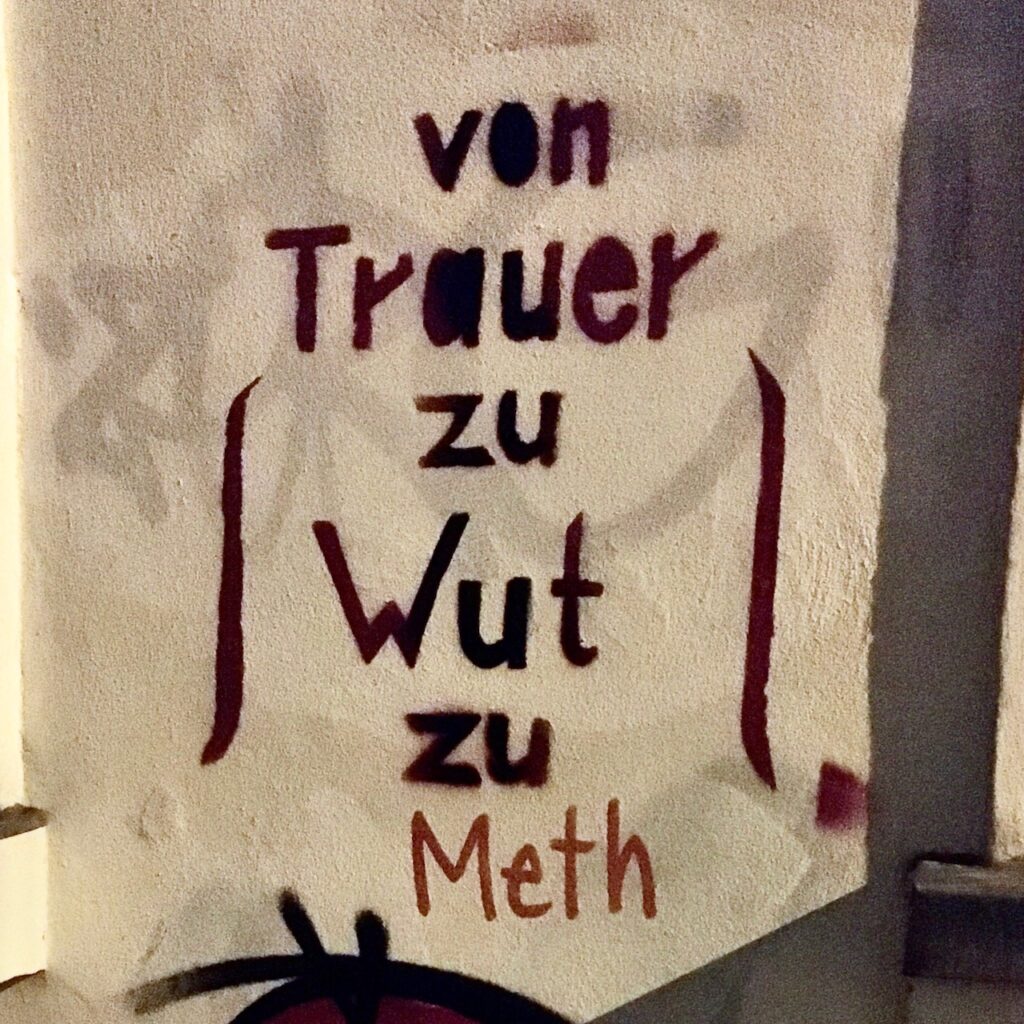 von
Trauer
zu
Wut
zu
Meth